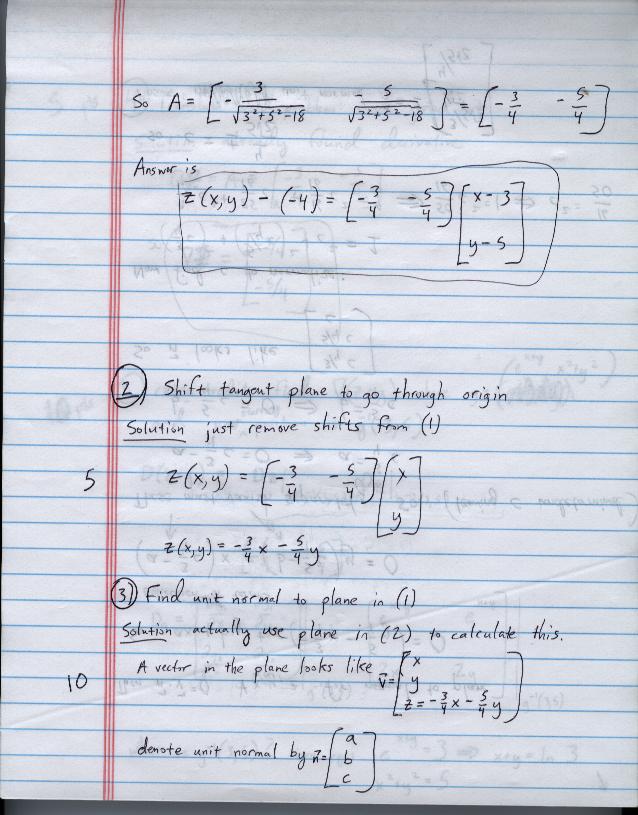 So A = [ - 3/√(3²+5²-18)   - 5/√(3²+5²-18) ] = [ - 3/4   - 5/4 ]
Answer is
z(x,y) - (-4) = [ -3/4   -5/4 ] [ x-3
y-5 ]
(2) Shift tangent plane to go through origin
Solution just remove shifts from (1)
5 z(x,y) = [ -3/4   -5/4 ] [ x
y ]
z(x,y) = -3/4 x - 5/4 y
(3) Find unit normal to plane in (1)
Solution actually use plane in (2) to calculate this.
10 A vector in the plane looks like v⃗ = [ x
y
z = -3/4 x - 5/4 y ]
denote unit normal by n⃗ = [ a
b
c ]